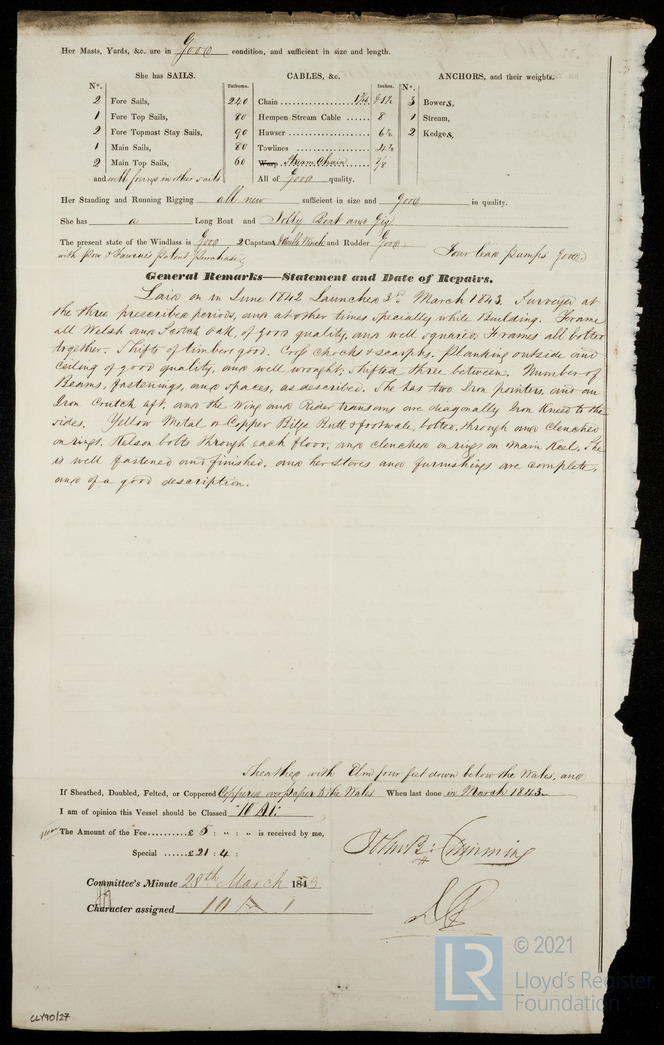 Her Masts, Yards, &c. are in Good condition, and sufficient in size and length.
She has SAILS.
CABLES, &c.
ANCHORS, and their weights.
N°.
Fathoms.
Inches.
N°.
2 Fore Sails, 240 Chain 3 Bowers,
1 Fore Top Sails, 80 Hempen Stream Cable 8 1 Stream,
2 Fore Topmast Stay Sails, 90 Hawser 2 Kedges,
1 Main Sails, 80 Towlines
2 Main Top Sails, 60 Warp Stream Chain 7/8
and well found in other sails All of Good quality.
Her Standing and Running Rigging all new sufficient in size and good in quality.
She has a Long Boat and Jolly Boat and Gig
The present state of the Windlass is Good, 2 Capstans & Winch and Rudder Good Four lead pumps good.
with Patent Purchase
General Remarks—Statement and Date of Repairs.
Laid on in June 1842 Launched 3rd March 1843. Surveyed at
the three prescribed periods, and at other times specially while Building. Frame
all Welsh and Scotch Oak, of good quality, and well squared; Frames all bolted
together. Shifts of timbers good. Cross chocks & scarphs. Planking outside and
Ceiling of good quality, and well wrought, shifted three between. Number of
Beams, fastenings, and spaces, as described. She has two Iron pointers, and an
Iron Crutch aft, and the Wing and Rider transoms are diagonally Iron Kneed to the
sides. Yellow Metal or Copper Bilge Butt & footwale, bolted through and clenched
on rings. Kelson bolts through each floor, and clenched on rings on Main Keel. She
is well fastened and finished, and her stores and furnishings are complete,
and of a good description.
Sheathed with Elm four feet down below the Wales, and
If Sheathed, Doubled, Felted, or Coppered Coppered over paper to the Wales When last done in March 1843.
I am of opinion this Vessel should be Classed 10 A1.
The Amount of the Fee..........£ 5 : „ : „ is received by me,
Special ......£ 21 : 4 :
John B. Cumming
Committee's Minute 28th March 1843
Character assigned 10 A 1
© 2021
LR
Lloyd's Register
Foundation
CLY90/27